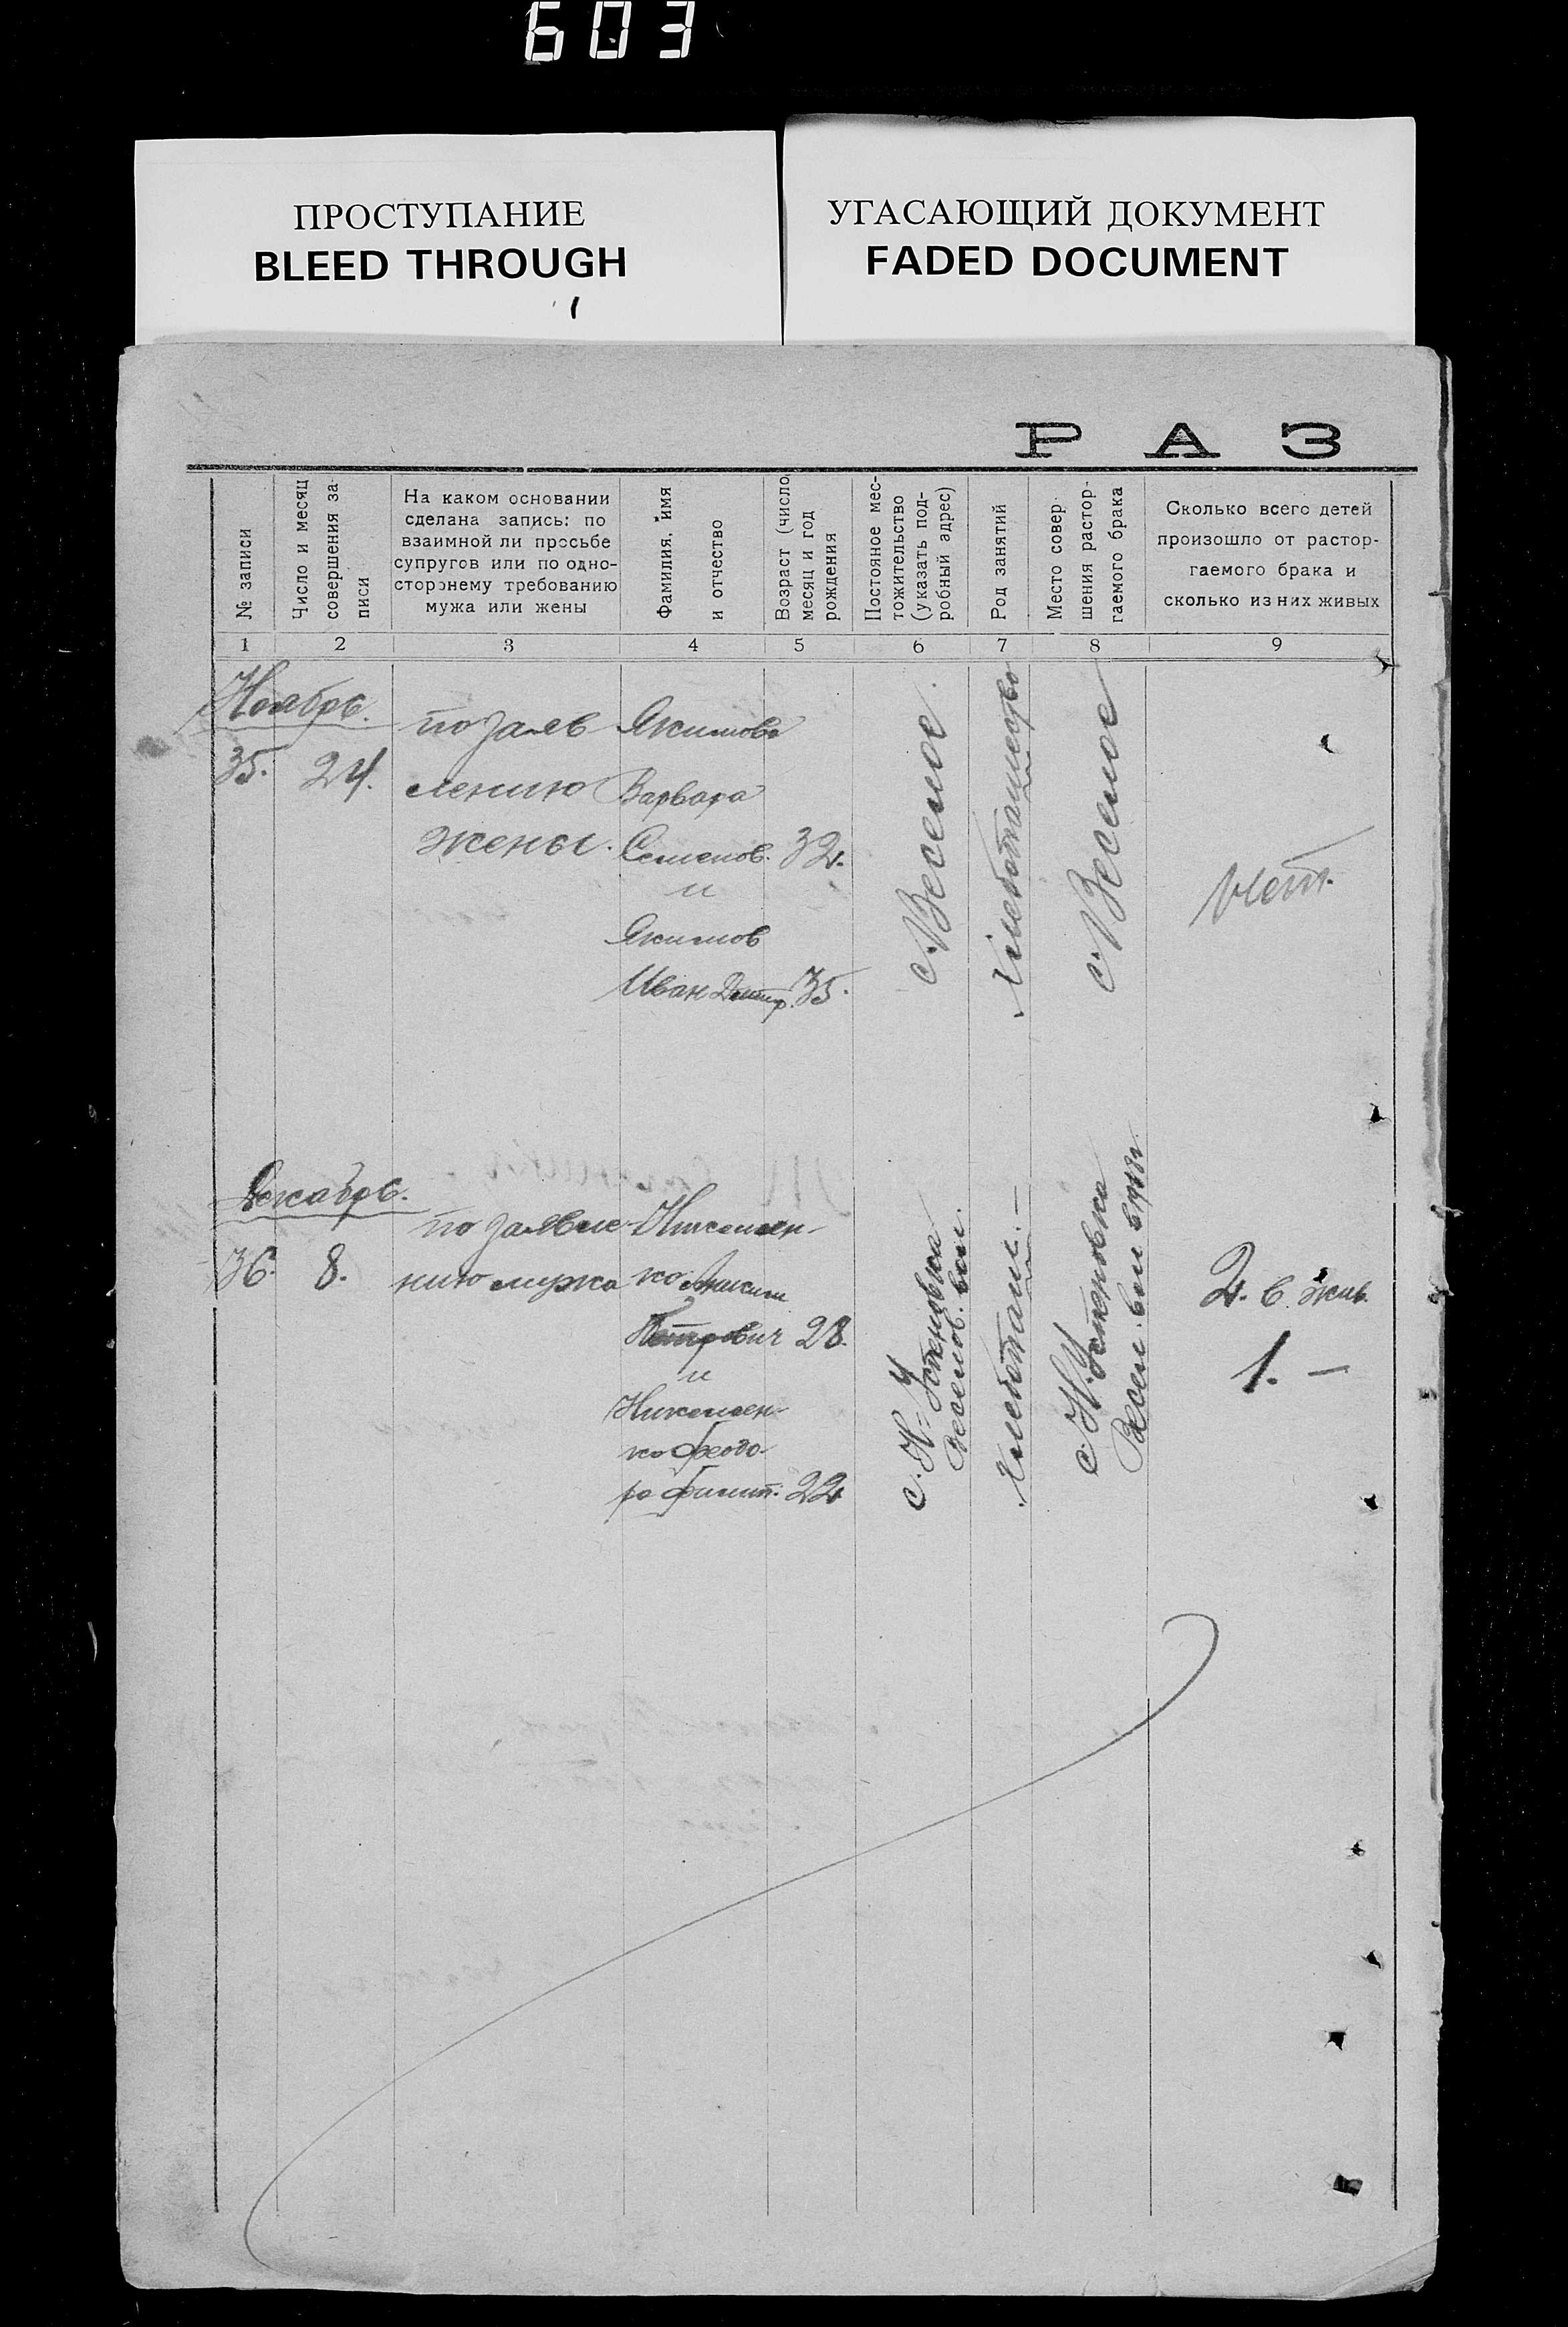 603
ПРОСТУПАНИЕ
BLEED THROUGH
УГАСАЮЩИЙ ДОКУМЕНТ
FADED DOCUMENT
РАЗ
№ записи
Число и месяц
совершения за
писи
На каком основании
сделана запись: по
взаимной ли просьбе
супругов или по одно-
стороннему требованию
мужа или жены
Фамилия, имя
и отчество
Возраст (число,
месяц и год
рождения
Постоянное мес-
тожительство
(указать под-
робный адрес)
Род занятий
Место совер
шения растор-
гаемого брака
Сколько всего детей
произошло от растор-
гаемого брака и
сколько из них живых
1 2 3 4 5 6 7 8 9
Ноябрь.
35. 24.
по заяв
лению
жены.
Якимова
Варвара
Семенов. 32.
и
Якимов
Иван Дмитр. 35.
с. Веселое.
Хлебопашество
с. Веселое
нет.
Декабрь.
36. 8.
по заявле
нию мужа
Никелен-
ко
Петрович 28.
и
Никелен-
ко Феодо-
ра Филип. 22
с. Н-Успеновка
Веселов. вол.
Хлебопаш. —
с. Н. Успеновка
Весел. вол. в 1918 г.
2. в жив.
1. —